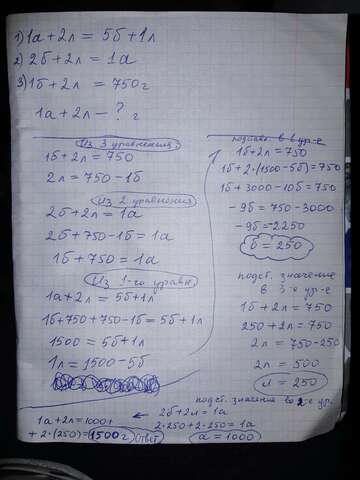 1) 1а + 2л = 5б + 1л
2) 2б + 2л = 1а
3) 1б + 2л = 750г
1а + 2л - ? г
Из 3 уравнения
1б + 2л = 750
2л = 750 - 1б
Из 2 уравнения
2б + 2л = 1а
2б + 750 - 1б = 1а
1б + 750 = 1а
Из 1-го уравн.
1а + 2л = 5б + 1л
1б + 750 + 750 - 1б = 5б + 1л
1500 = 5б + 1л
1л = 1500 - 5б
в ур-е
1б + 2л = 750
1б + 2·(1500 - 5б) = 750
1б + 3000 - 10б = 750
- 9б = 750 - 3000
- 9б = -2250
б = 250
подст. значение
в 3-е ур-е
1б + 2л = 750
250 + 2л = 750
2л = 750 - 250
2л = 500
л = 250
подст. значение во 2-е ур.
2б + 2л = 1а
2·250 + 2·250 = 1а
а = 1000
1а + 2л = 1000 +
+ 2·(250) = 1500г ответ